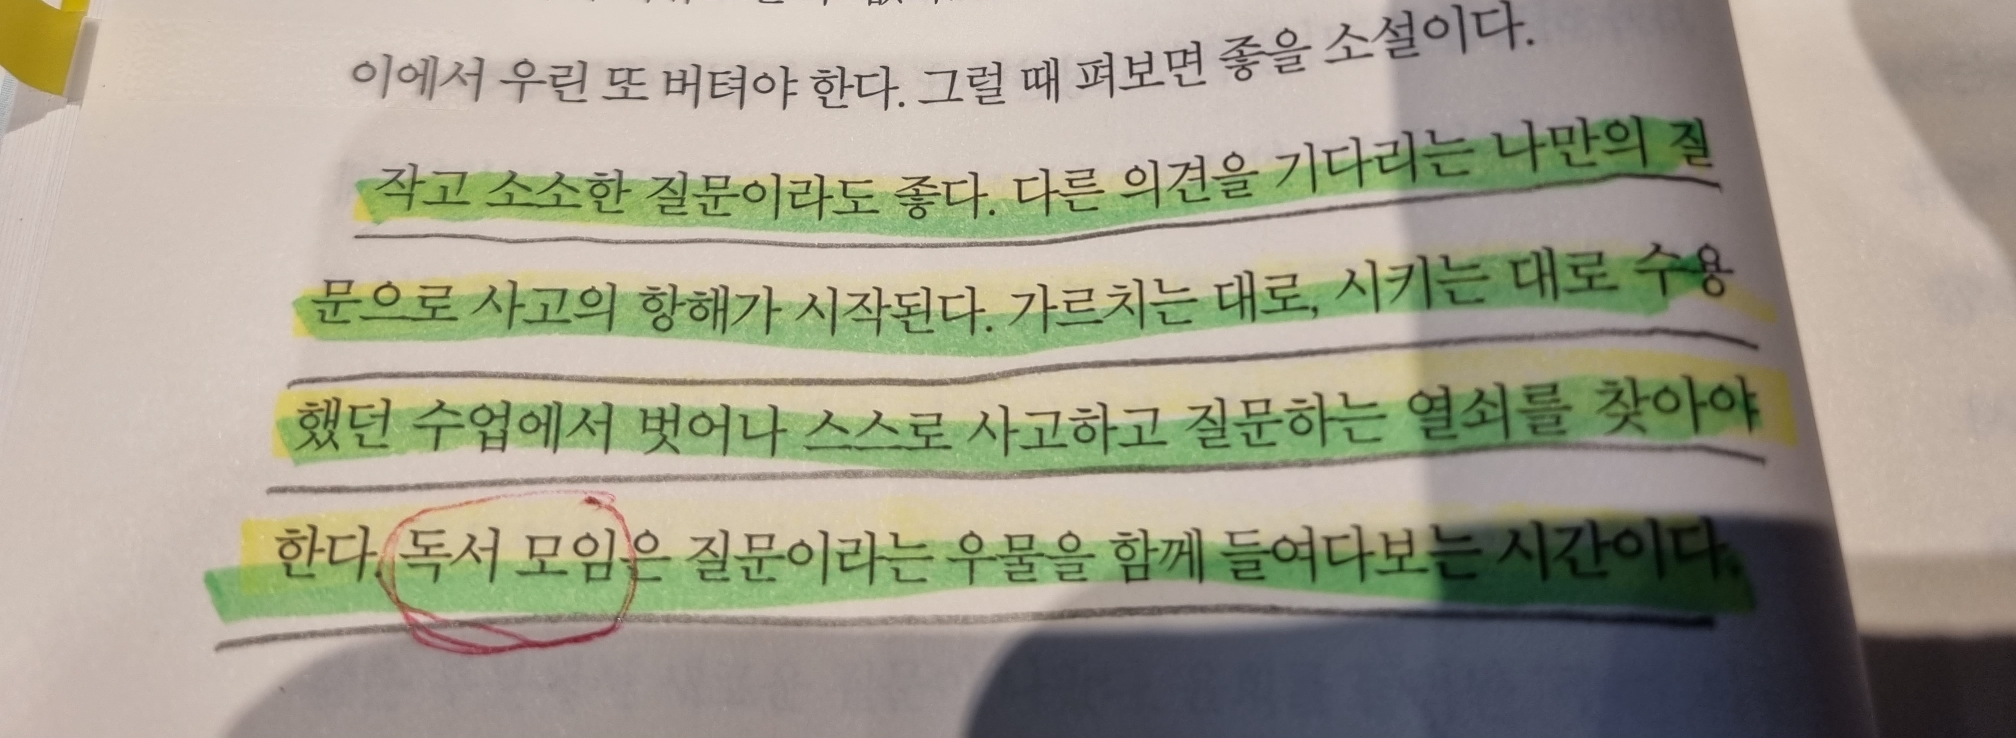 이에서 우린 또 버텨야 한다. 그럴 때 펴보면 좋을 소설이다.
작고 소소한 질문이라도 좋다. 다른 의견을 기다리는 나만의 질
문으로 사고의 항해가 시작된다. 가르치는 대로, 시키는 대로 수용
했던 수업에서 벗어나 스스로 사고하고 질문하는 열쇠를 찾아야
한다. 독서 모임은 질문이라는 우물을 함께 들여다보는 시간이다.